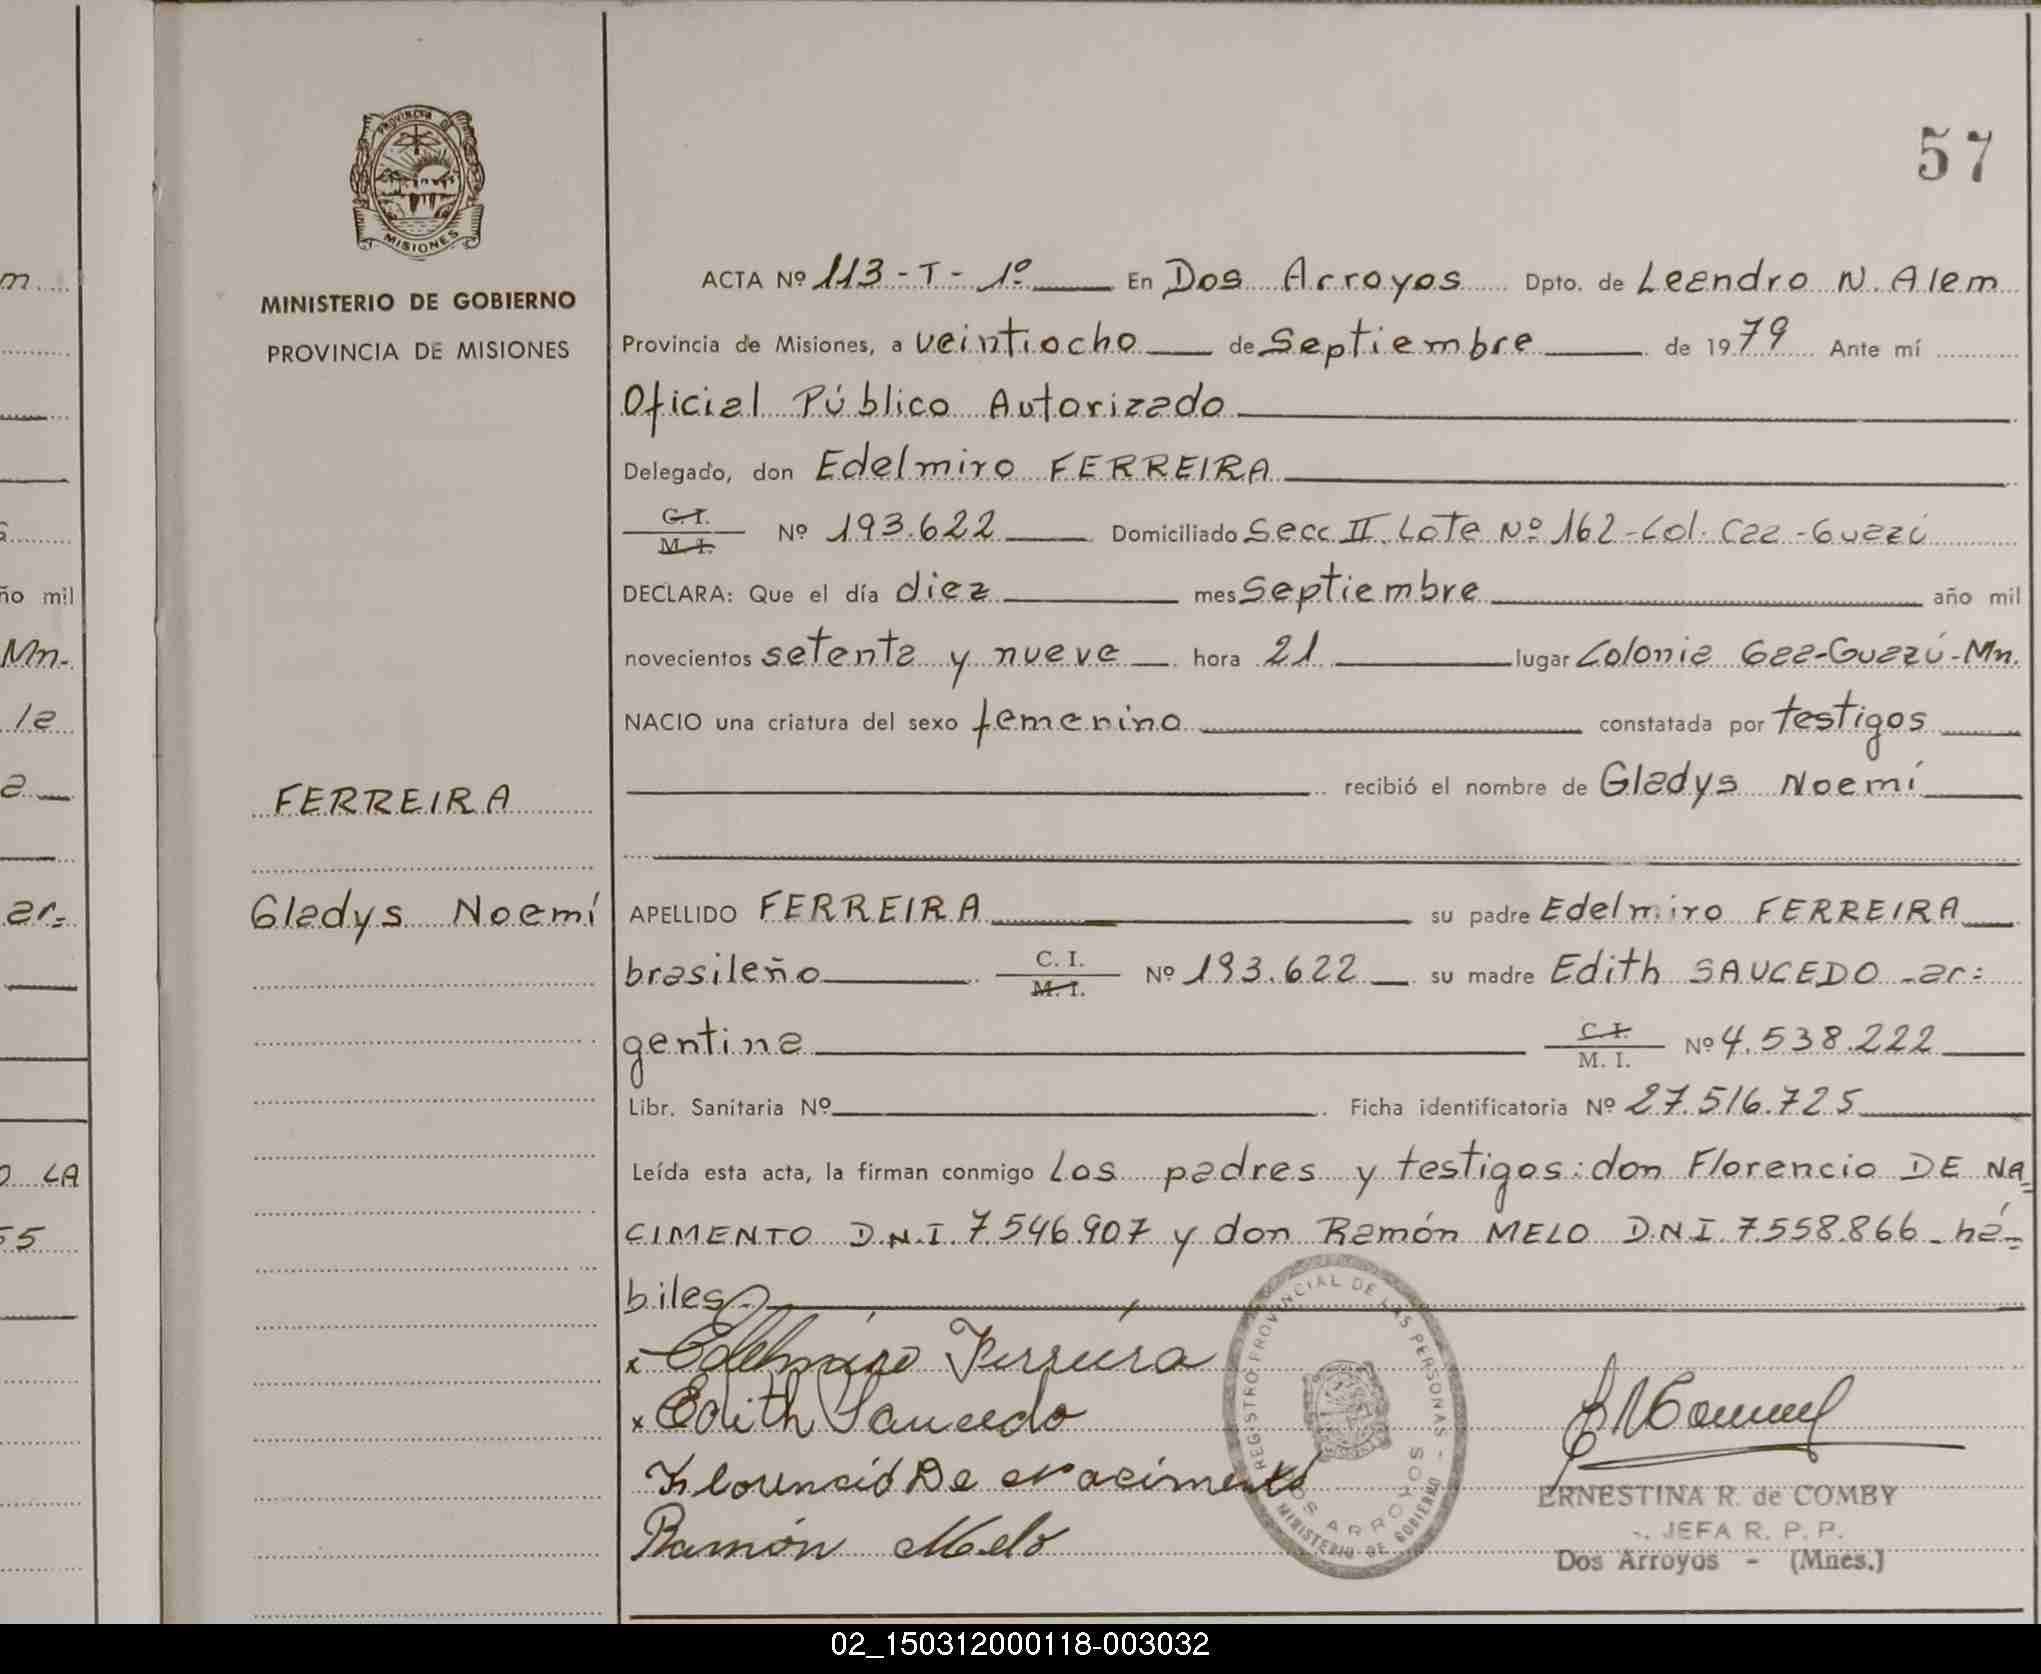 PROVINCIA DE
MISIONES
MINISTERIO DE GOBIERNO
PROVINCIA DE MISIONES
FERREIRA
Gladys Noemí
57
ACTA Nº 113-T-1º En Dos Arroyos Dpto. de Leandro N. Alem
Provincia de Misiones, a veintiocho de Septiembre de 1979 Ante mí
Oficial Público Autorizado
Delegado, don Edelmiro FERREIRA
C.I. M.I. Nº 193.622 Domiciliado Secc. II. Lote Nº 162-Col. Caa-Guazú
DECLARA: Que el día diez mes Septiembre año mil
novecientos setenta y nueve hora 21 lugar Colonia Caa-Guazú-Mn.
NACIO una criatura del sexo femenino constatada por testigos
recibió el nombre de Gladys Noemí
APELLIDO FERREIRA su padre Edelmiro FERREIRA
brasileño C. I. M. I. Nº 193.622 su madre Edith SAUCEDO -ar=
gentina C. I. M. I. Nº 4.538.222
Libr. Sanitaria Nº Ficha identificatoria Nº 27.516.725
Leída esta acta, la firman conmigo los padres y testigos: don Florencio DE NA=
CIMENTO D.N.I. 7.546.907 y don Ramón MELO D.N.I. 7.558.866 - há=
biles.-
x Edelmiro Ferreira
x Edith Saucedo
Florencio De Nacimento
Ramón Melo
REGISTRO PROVINCIAL DE LAS PERSONAS -
DOS ARROYOS
MINISTERIO DE GOBIERNO
ERNESTINA R. de COMBY
JEFA R. P. P.
Dos Arroyos - (Mnes.)
m
año mil
Mn.
la
a
ar=
LA
55
02_150312000118-003032